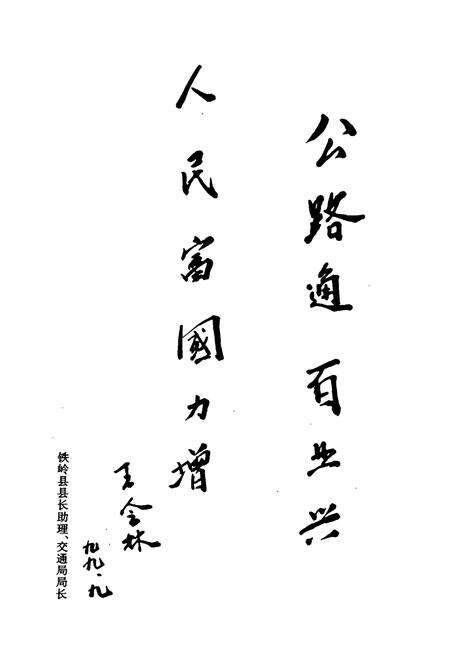 公路通百业兴
人民富國力增
王金林
九九.九
铁岭县县长助理、交通局局长